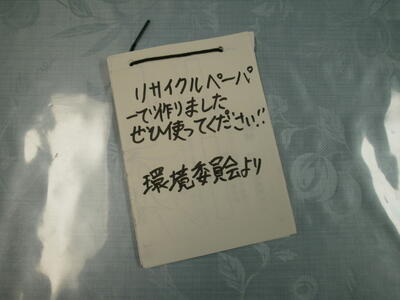 リサイクルペーパ
ーで作りました
ぜひ使ってください!!
環境委員会より